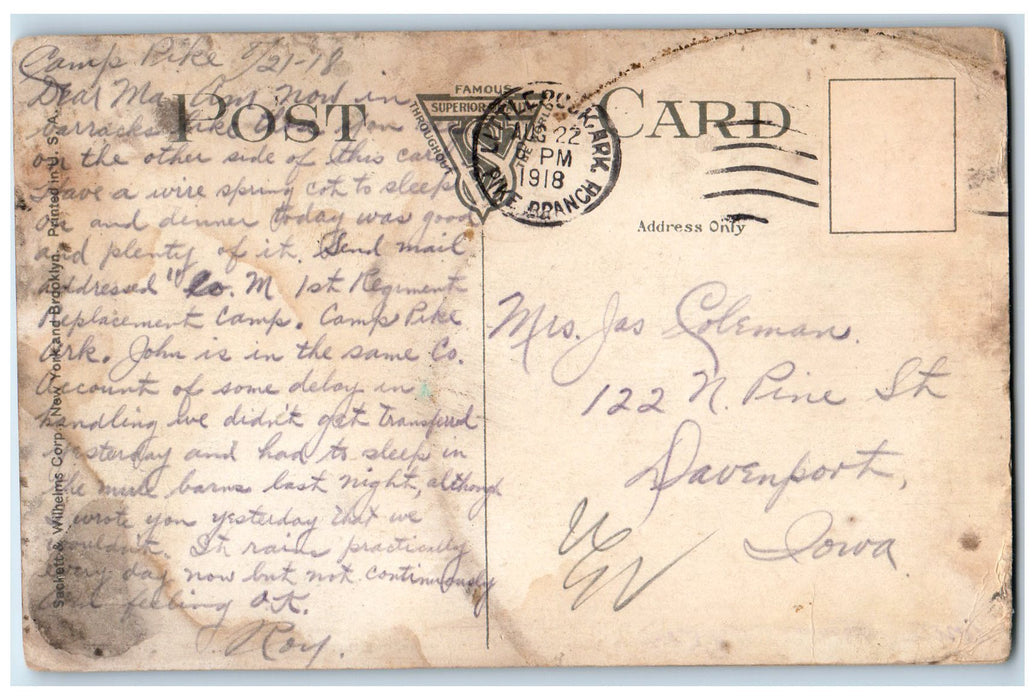 Camp Pike 8/21-18
Dear Ma. Am now in
barracks like those you
on the other side of this card
Have a wire spring cot to sleep
on and dinner today was good
and plenty of it. Send mail
addressed "Co. M 1st Regiment
Replacement Camp. Camp Pike
Ark. John is in the same Co.
Account of some delay in
handling we didn't get transferred
yesterday and had to sleep in
the mule barns last night, although
wrote you yesterday that we
wouldn't. It rains practically
every day now but not continuously
and feeling O.K.
Roy.
POST CARD
FAMOUS
SUPERIOR
THROUGHOUT
THE WORLD
LITTLE ROCK, ARK.
AUG 22
PM
1918
PIKE BRANCH
Address Only
Mrs. Jas Coleman.
122 N. Pine St
Davenport,
Iowa
Sackett & Wilhelms Corp. New York and Brooklyn. Printed in U. S. A.